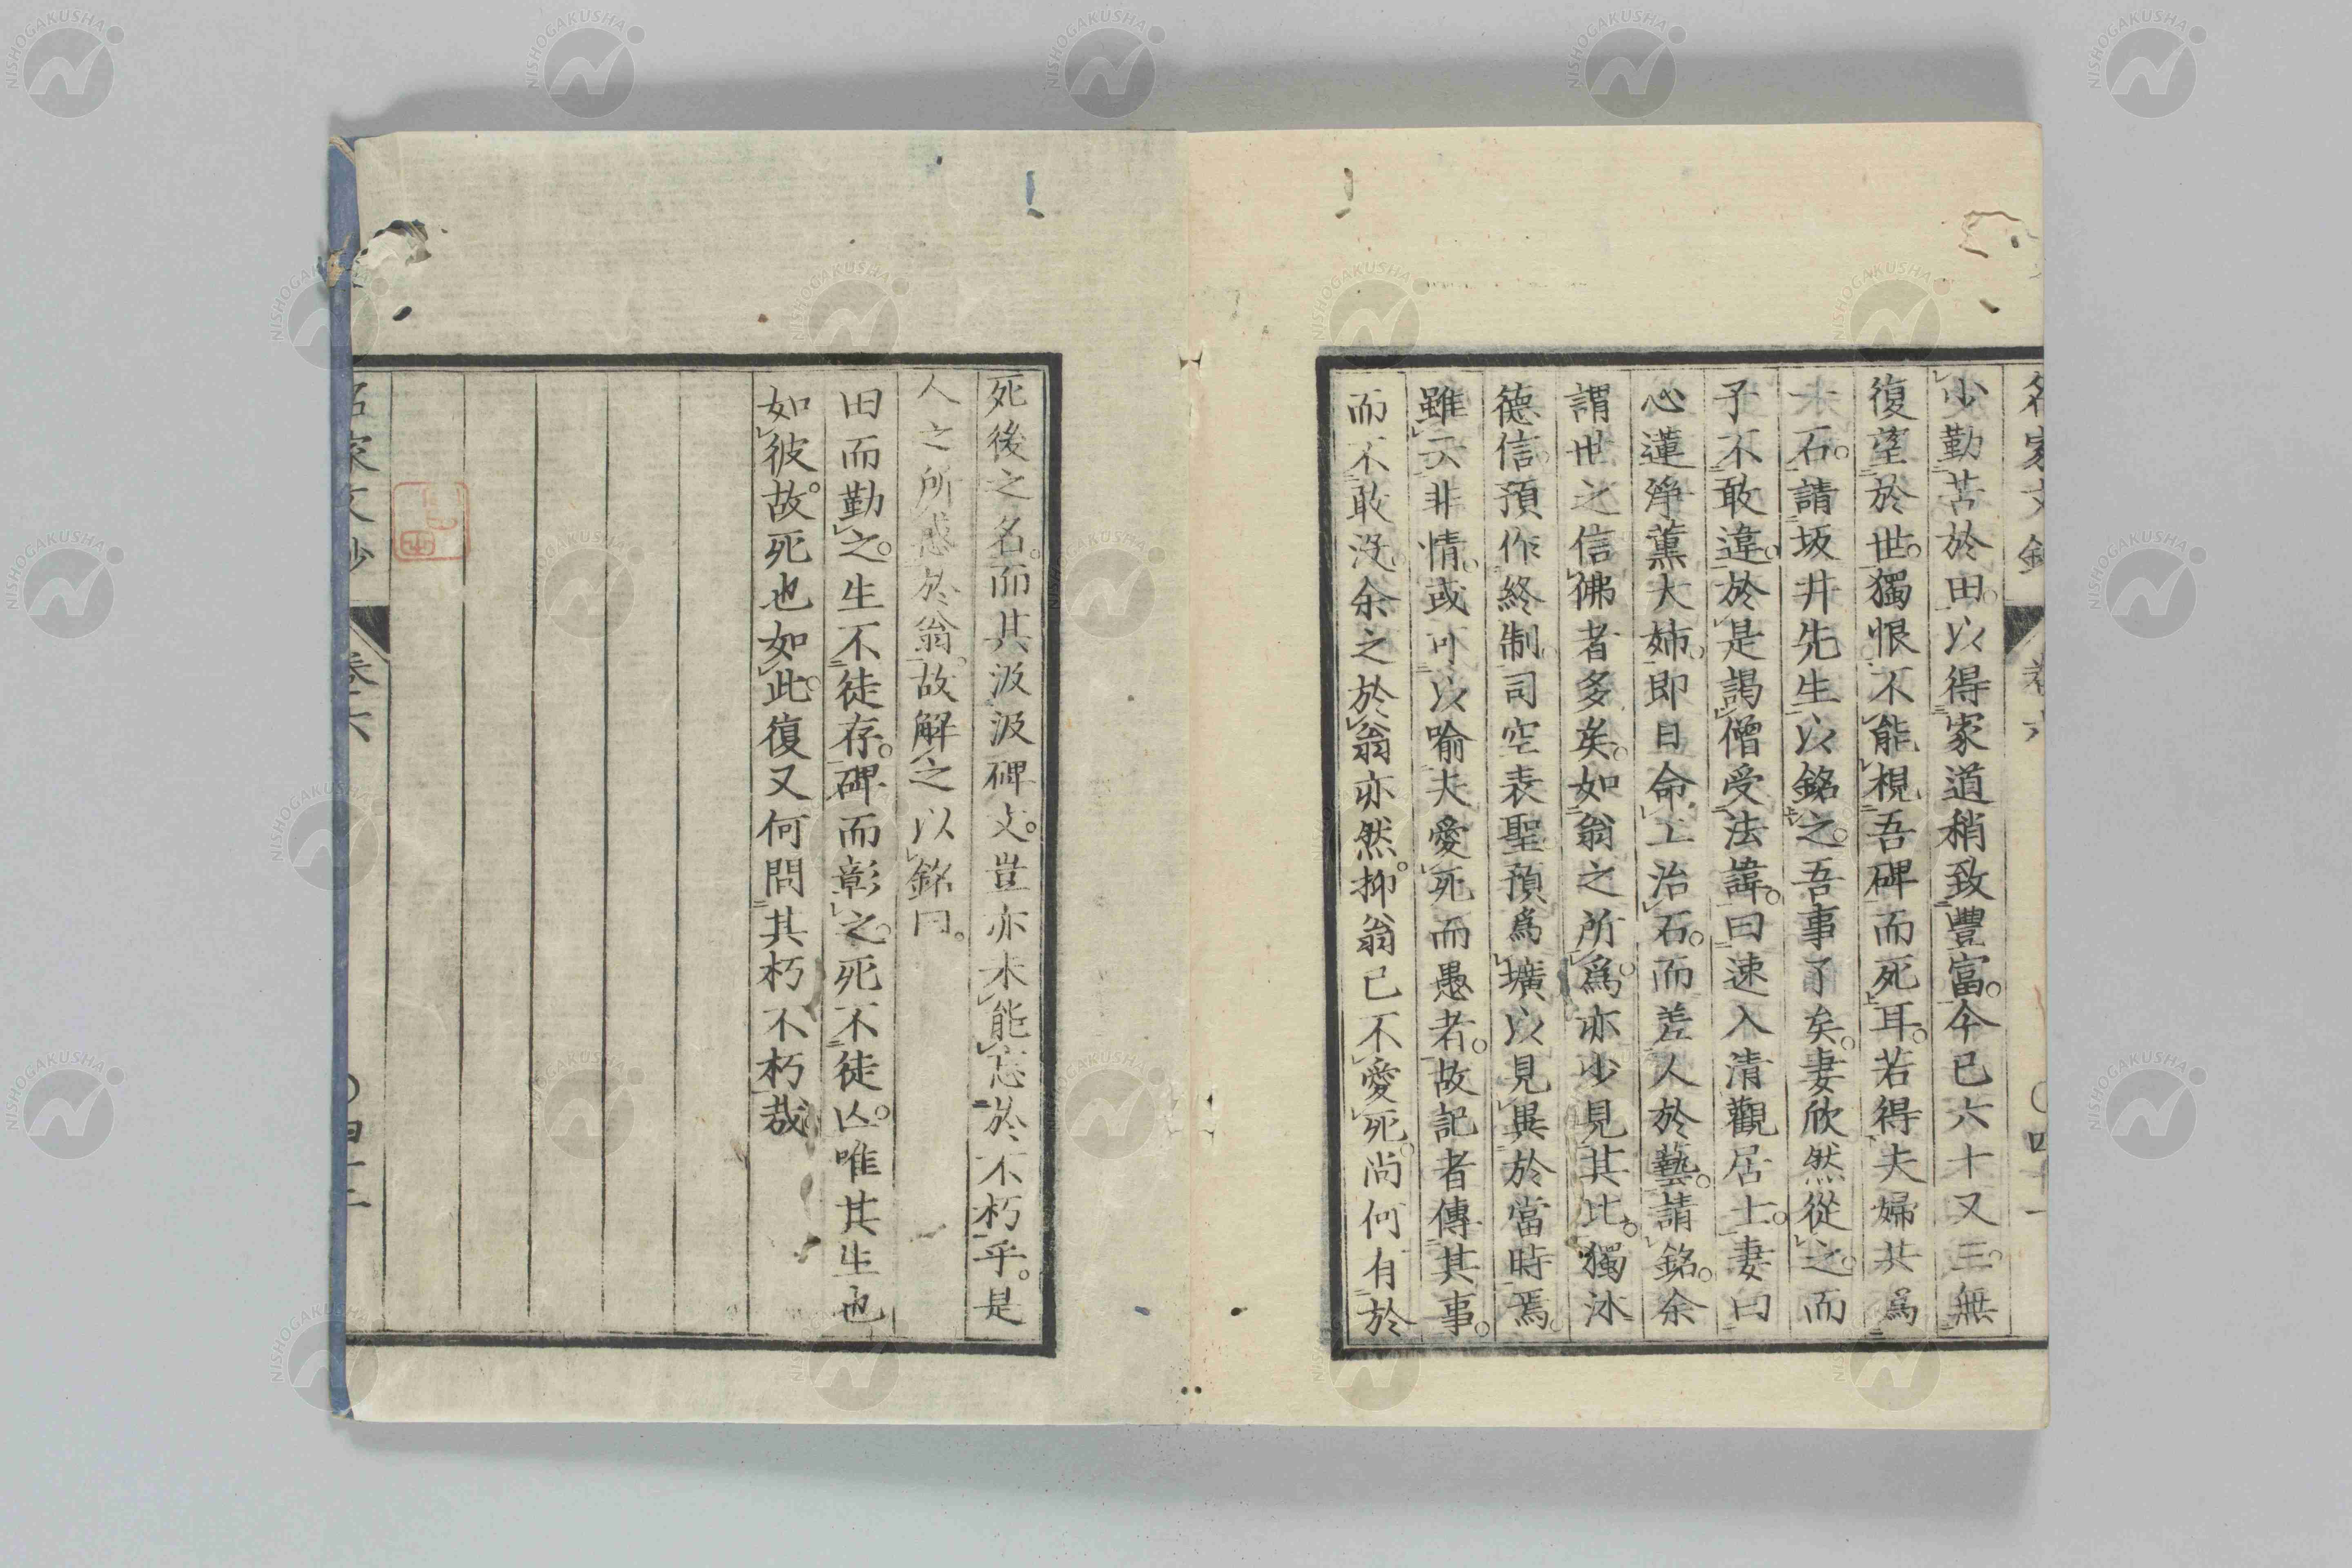 名家文鈔　卷六　〇四十一
少勤苦於田。以得家道稍致豐富。今已六十又三。無
復望於世。獨恨不能視吾碑而死耳。若得夫婦共爲
一石。請坂井先生以銘之。吾事了矣。妻欣然從之。而
子不敢違。於是謁僧受法諱。曰速入清觀居士。妻曰
心蓮淨薰大姉。即日命工治石。而差人於藝。請銘。余
謂世之信佛者多矣。如翁之所爲。亦少見其比。獨沐
德信預作終制。司空表聖預爲壙。以見異於當時焉。
雖云非情。或可以喻夫愛死而愚者。故記者傳其事。
而不敢沒。余之於翁亦然。抑翁已不愛死。尚何有於
死後之名。而其汲汲碑文。豈亦未能忘於不朽乎。是
人之所惑於翁。故解之以銘曰。
田而勤之。生不徒存。碑而彰之。死不徒亾。唯其生也
如彼。故死也如此。復又何問其朽不朽哉
名家文鈔　卷六　〇四十二
NISHOGAKUSHA